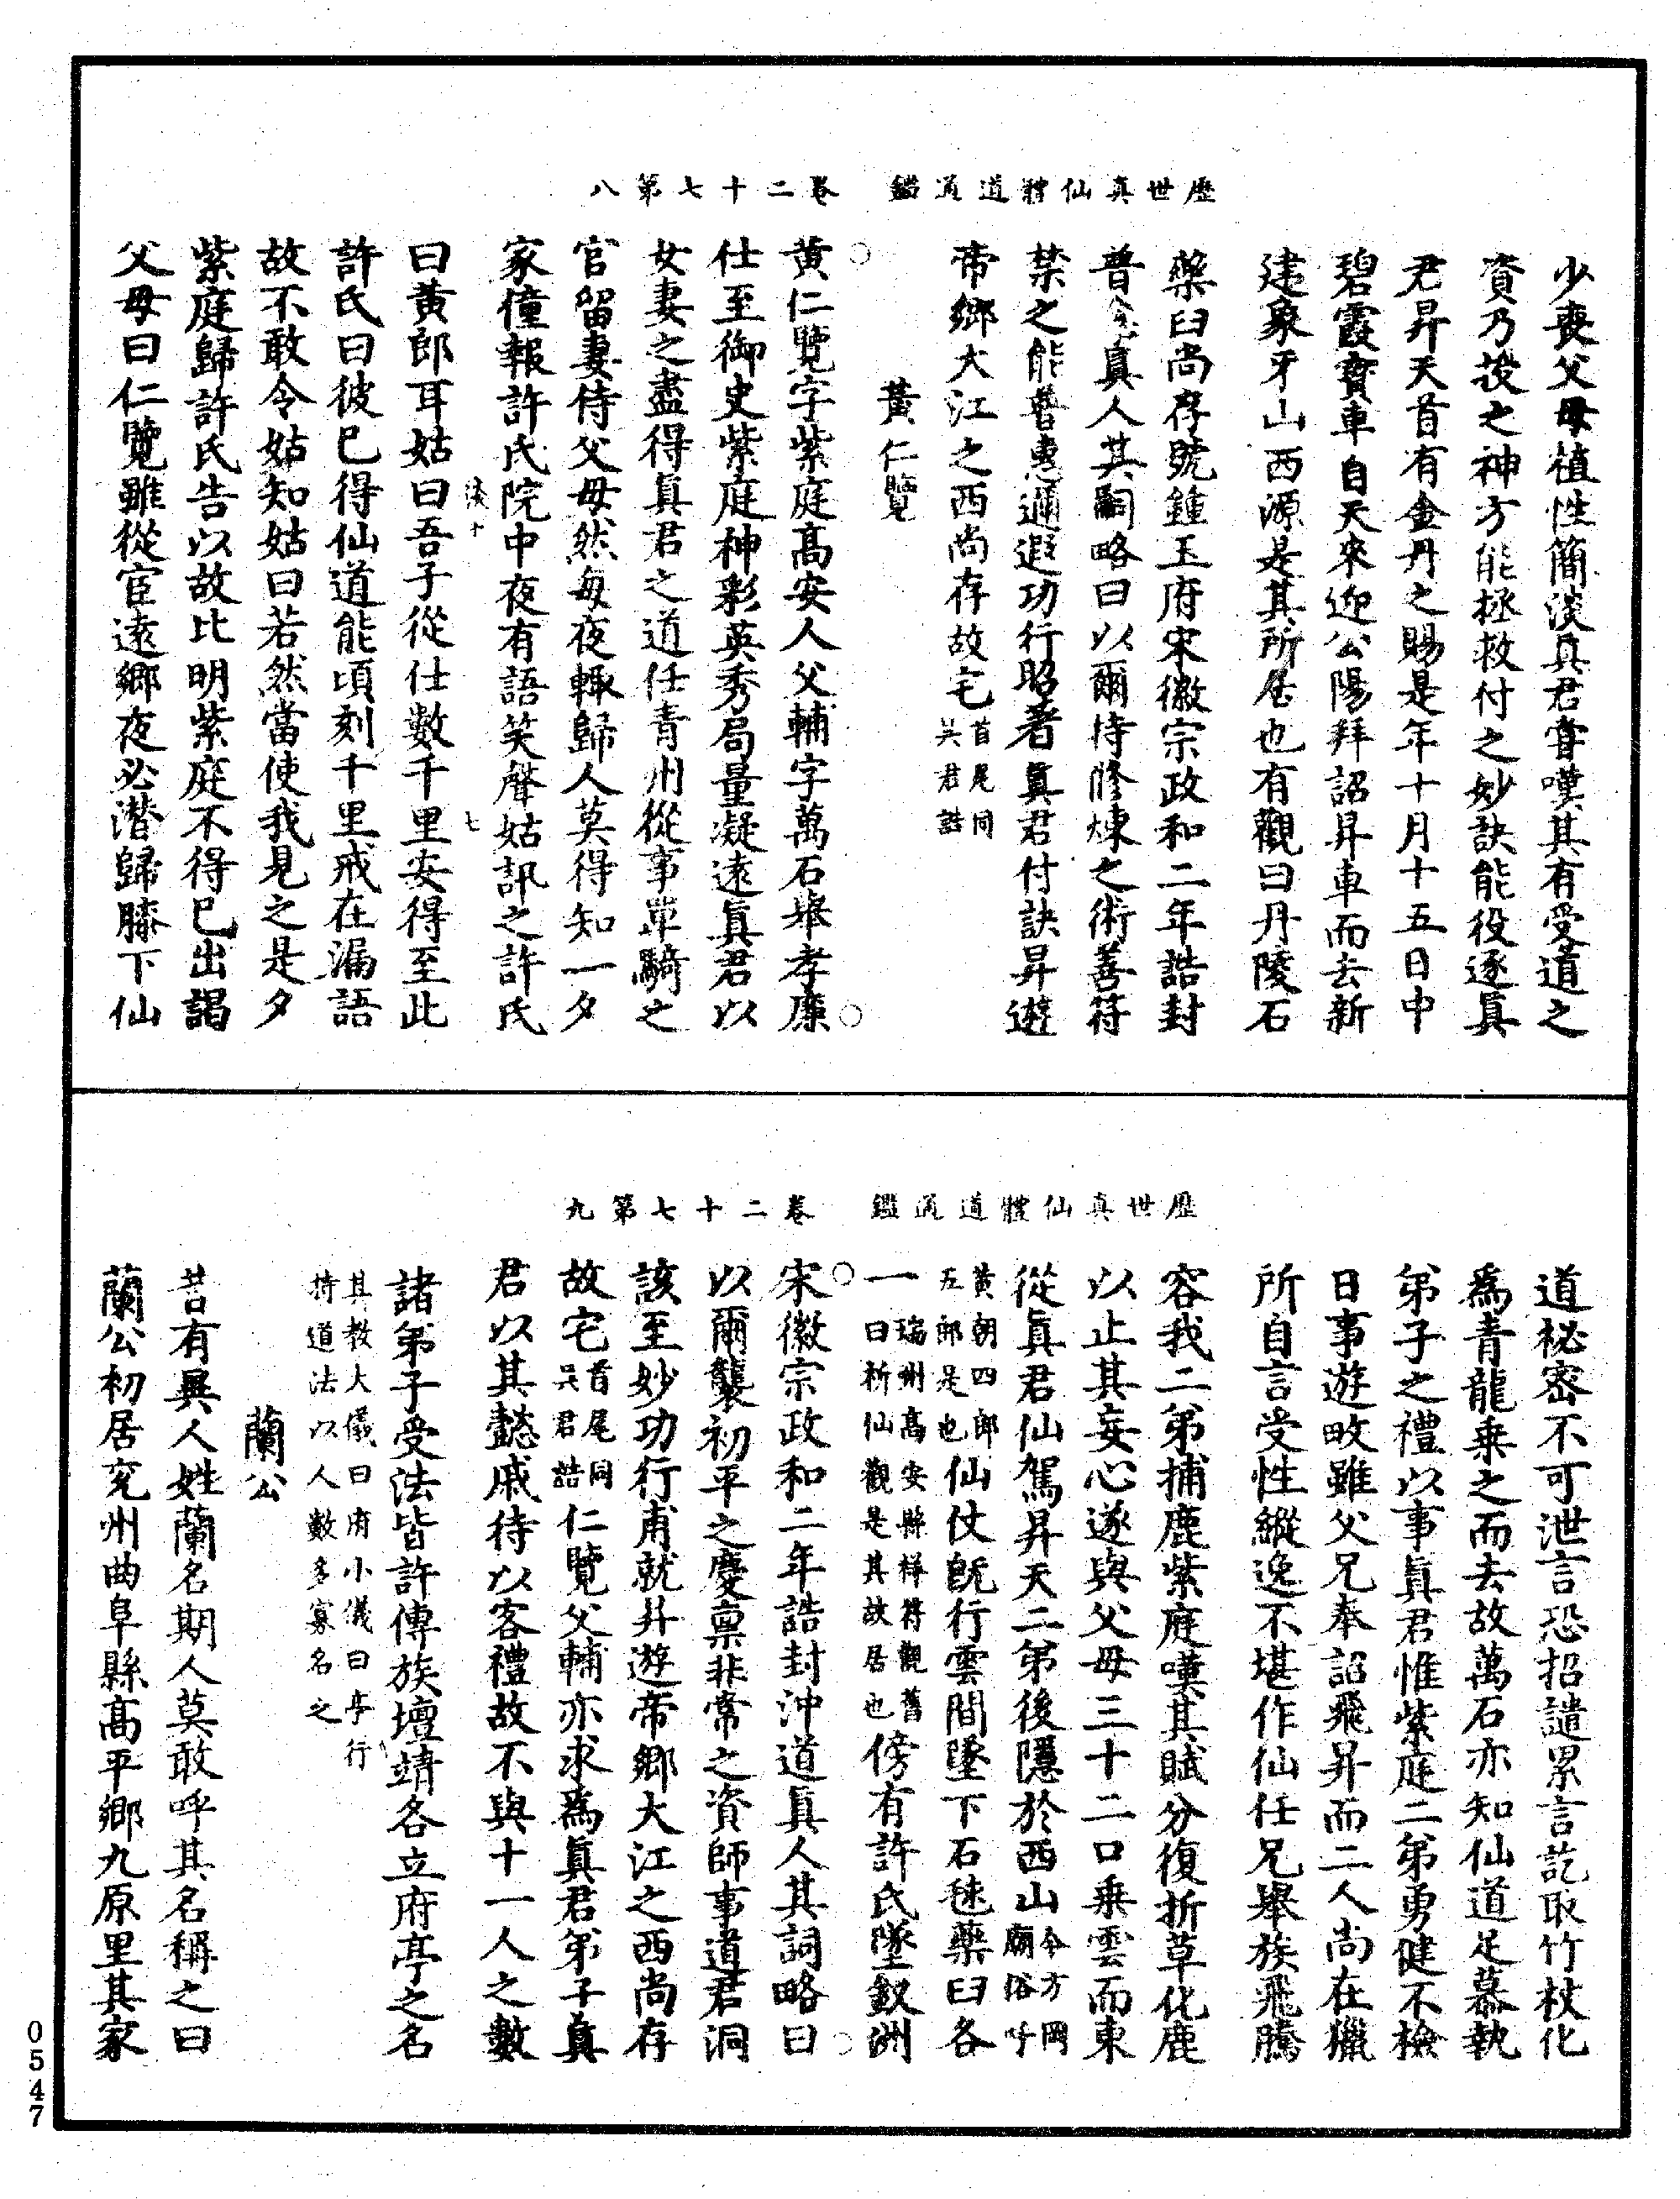 歷世真仙體道通鑑　卷二十七第八
少喪父母植性簡淡真君嘗嘆其有受道之
資乃授之神方能拯救付之妙訣能役逐真
君昇天首有金丹之賜是年十月十五日中
碧霞寶車自天來迎公陽拜詔昇車而去新
建象牙山西源是其所居也有觀曰丹陵石
藥臼尚存號鍾玉府宋徽宗政和二年誥封
普真人其嗣略曰以爾持脩煉之術善符
禁之能普惠邇遐功行昭著真君付訣昇遊
帝鄉大江之西尚存故宅首尾同吳君誥
黃仁覽
黃仁覽字紫庭高安人父輔字萬石舉孝廉
仕至御史紫庭神彩英秀局量凝遠真君以
女妻之盡得真君之道任青州從事單騎之
官留妻侍父母然每夜輒歸人莫得知一夕
家僮報許氏院中夜有語笑聲姑訊之許氏
淡十　七
曰黃郎耳姑曰吾子從仕數千里安得至此
許氏曰彼已得仙道能頃刻千里戒在漏語
故不敢令姑知姑曰若然當使我見之是夕
紫庭歸許氏告以故比明紫庭不得已出謁
父母曰仁覽雖從宦遠鄉夜必潛歸膝下仙
歷世真仙體道通鑑　卷二十七第九
道祕密不可泄言恐招譴累言訖取竹杖化
為青龍乘之而去故萬石亦知仙道足慕執
弟子之禮以事真君惟紫庭二弟勇健不檢
日事遊畋雖父兄奉詔飛昇而二人尚在獵
所自言受性縱逸不堪作仙任兄舉族飛騰
容我二弟捕鹿紫庭嘆其賦分復折草化鹿
以止其妄心遂與父母三十二口乘雲而東
從真君仙駕昇天二弟後隱於西山今方岡廟俗呼
黃朝四郎五郎是也仙仗旣行雲間墜下石毬藥臼各
一瑞州高安縣祥符觀舊曰祈仙觀是其故居也傍有許氏墜釵洲
宋徽宗政和二年誥封沖道真人其詞略曰
以爾襲初平之慶禀非常之資師事道君洞
該至妙功行甫就昇遊帝鄉大江之西尚存
故宅首尾同吳君誥仁覽父輔亦求為真君弟子真
君以其懿戚待以客禮故不與十一人之數
諸弟子受法皆許傳族壇靖各立府亭之名
其教大儀曰府小儀曰亭行持道法以人數多寡名之
蘭公
昔有異人姓蘭名期人莫敢呼其名稱之曰
蘭公初居兗州曲阜縣高平鄉九原里其家
0547